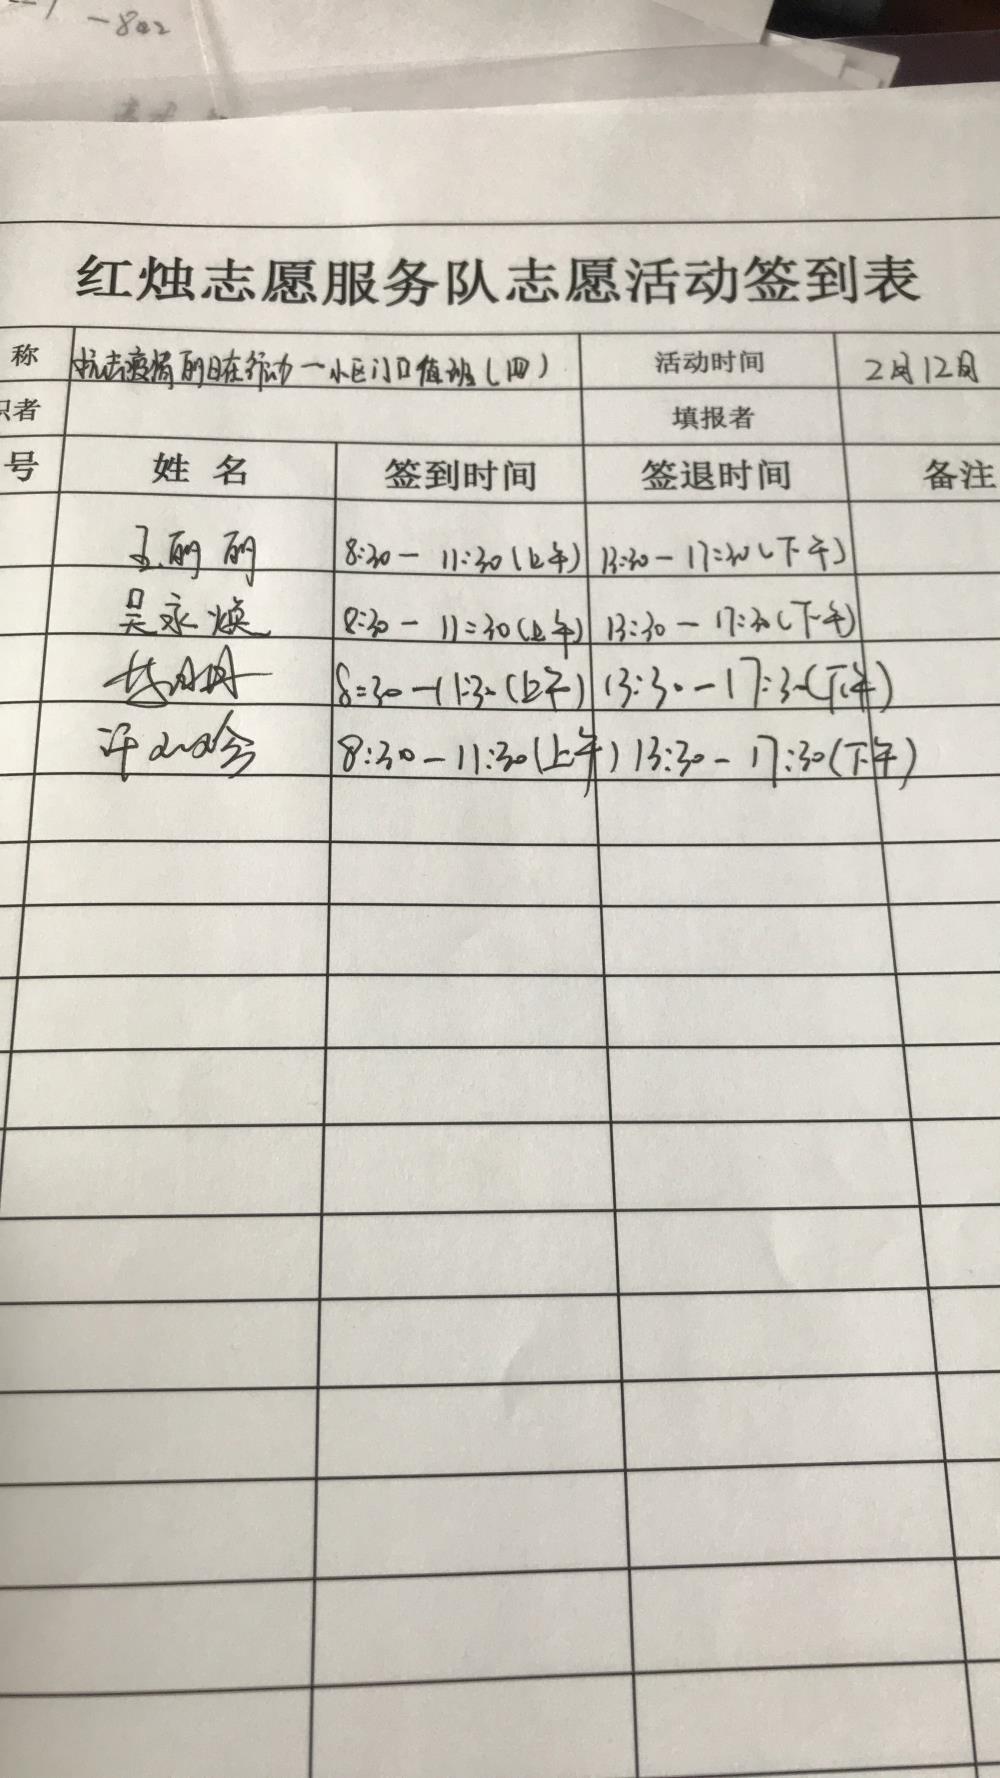 -802
红烛志愿服务队志愿活动签到表
称 抗击疫情 丽日在行动—小区门口值班(四) 活动时间 2月12日
织者 填报者
号 姓 名 签到时间 签退时间 备注
王丽丽 8:30 — 11:30(上午) 13:30 — 17:30(下午)
吴永焕 8:30 — 11:30(上午) 13:30 — 17:30(下午)
8:30 — 11:30(上午) 13:30 — 17:30(下午)
8:30 — 11:30(上午) 13:30 — 17:30(下午)